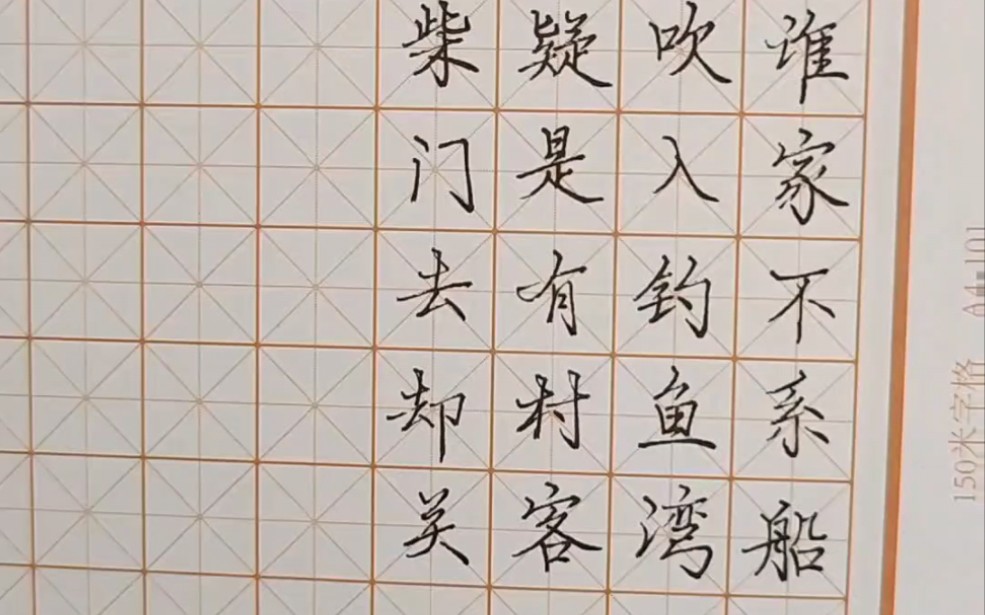 谁家不系船
吹入钓鱼湾
疑是有村客
柴门去却关
150米字格